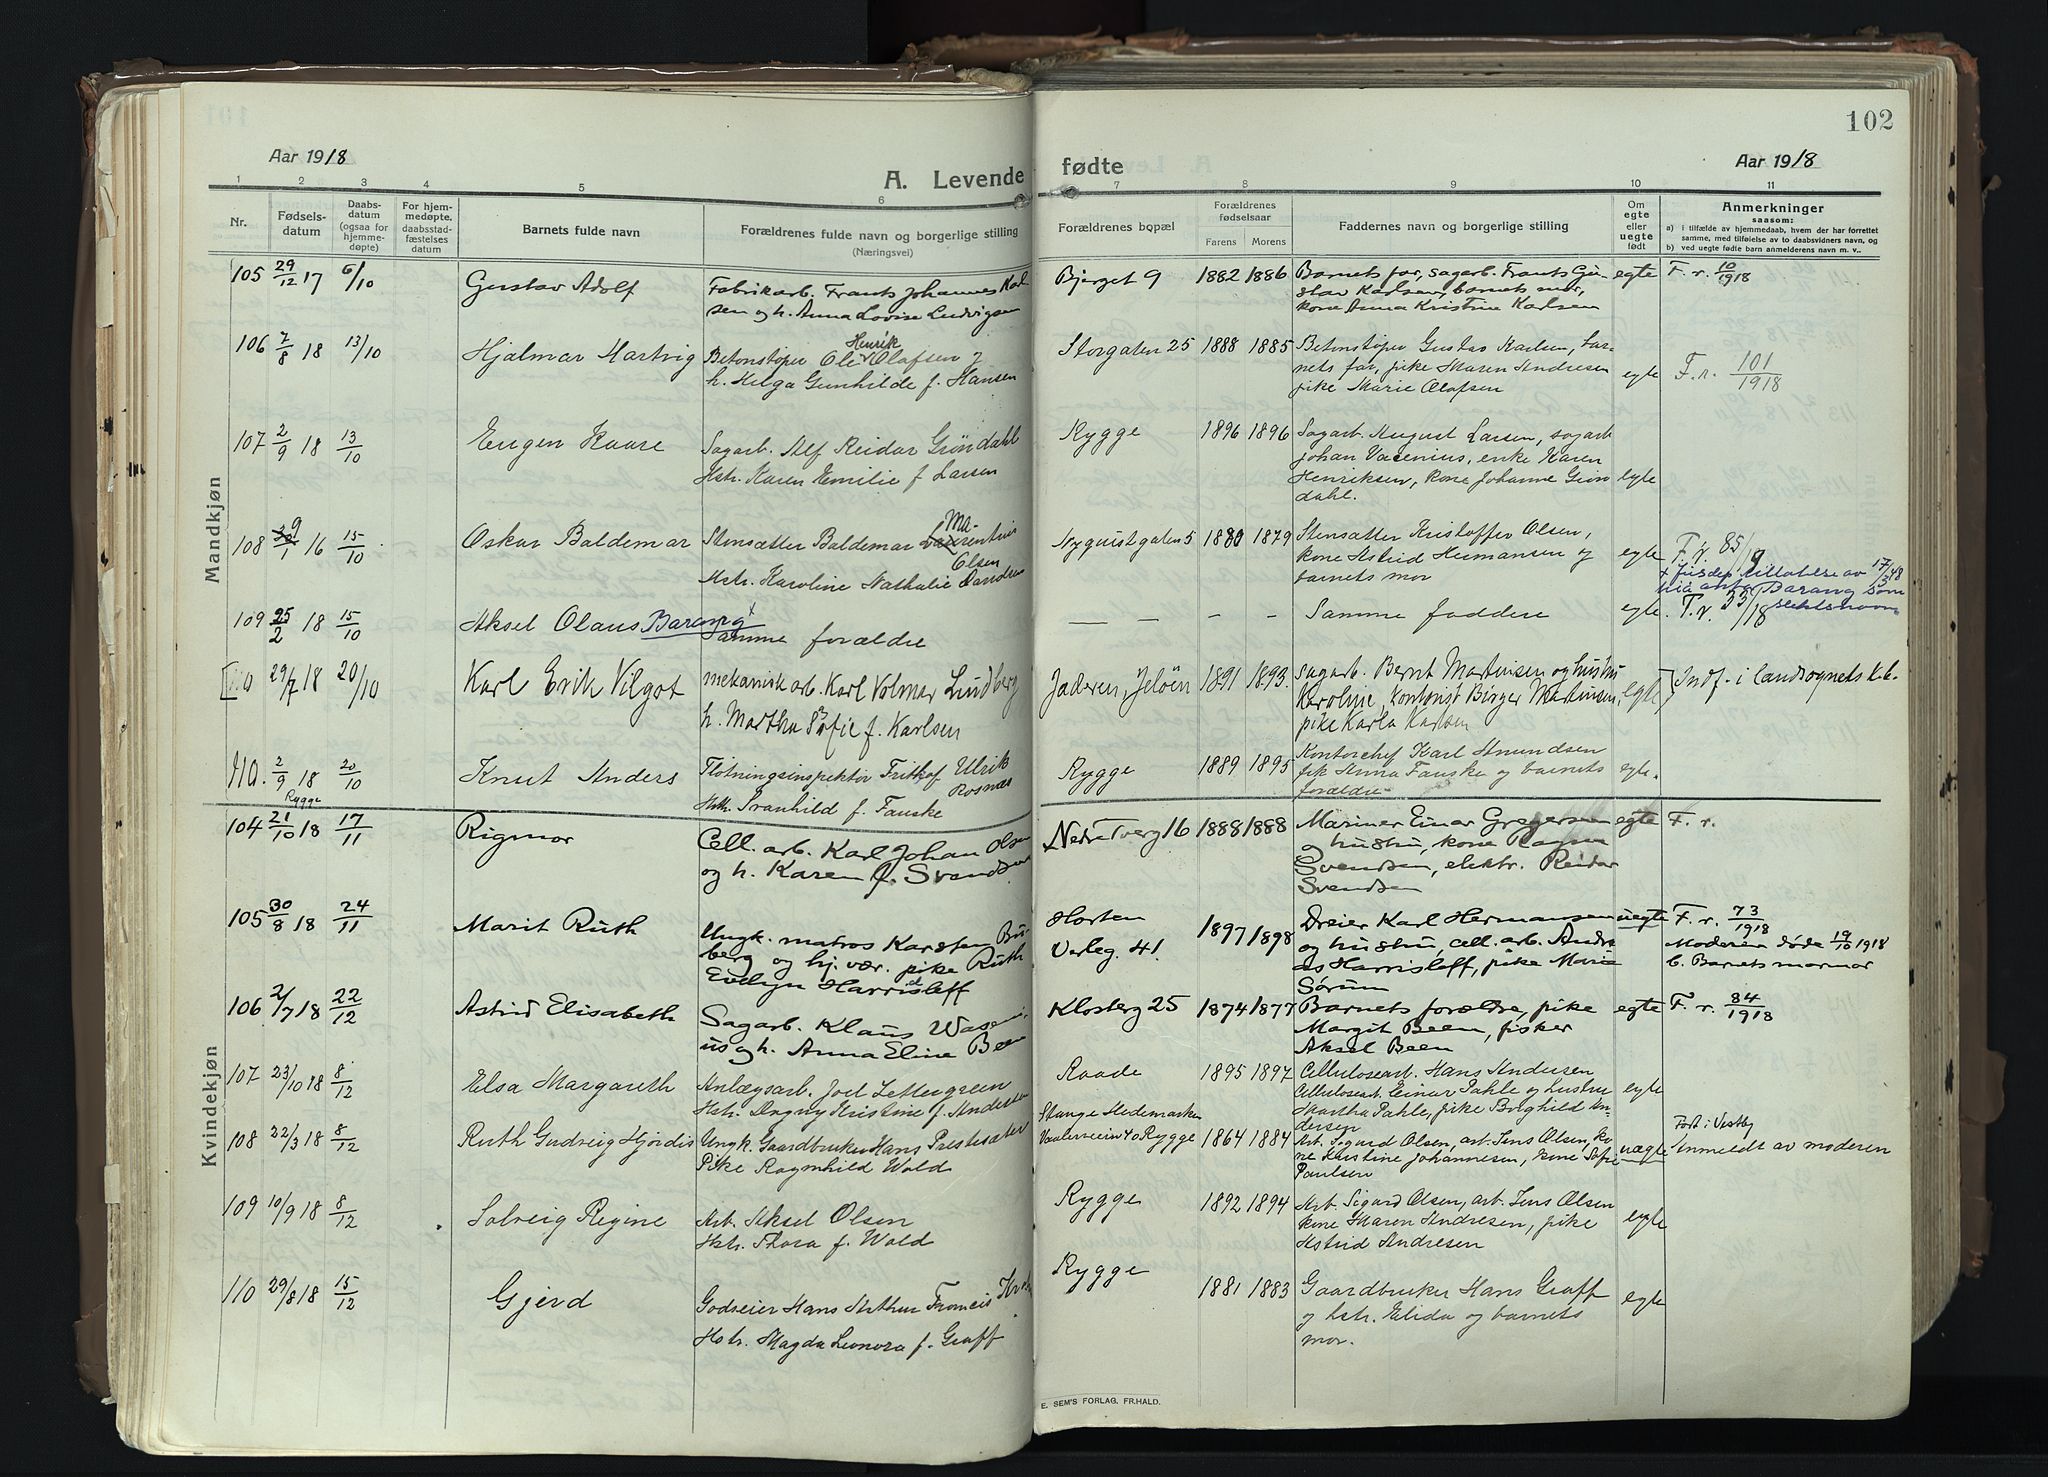 102
Aar 1918
A. Levende
fødte
Aar 1918
1 2 3 4 5 6 7 8 9 10 11
Nr.
Fødsels-
datum
Daabs-
datum
(ogsaa for
hjemme-
døpte)
For hjem-
medøpte,
daabsstad-
fæstelses
datum
Barnets fulde navn
Forældrenes fulde navn og borgerlige stilling
(Næringsvei)
Forældrenes bopæl
Forældrenes
fødselsaar
Farens Morens
Faddernes navn og borgerlige stilling
Om
egte
eller
uegte
født
Anmerkninger
saasom:
a) i tilfælde av hjemmedaab, hvem der har forrettet
samme, med tilføielse av to daabsvidners navn, og
b) ved uegte fødte barn anmelderens navn m. v..
Mandkjøn
105 29/12 17 6/10 Gustav Adolf
Fabrikarb. Frants Johannes Karl-
sen og h. Anna Lovise Ludvigsen
Bjerget 9 1882 1886
Barnets far, sagarb. Frants Gu-
stav Karlsen, barnets mor,
kone Anna Kristine Karlsen
egte F. r. 10/1918
106 7/8 18 13/10 Hjalmar Hartvig
Betonstøper Ole Henrik Olafsen
h. Helga Gunhilde f. Hansen
Storgaten 25 1888 1885
Betonstøper Gustav Karlsen, bar-
nets far, pike Maren Andresen
pike Marie Olafsen
egte F. r. 101/1918
107 2/9 18 13/10 Eugen Kaare
Sagarb. Alf Reidar Gröndahl
Hstr. Karen Emilie f Larsen
Rygge 1896 1896
Sagarb. August Larsen, sagarb
Johan Vacenius, enke Karen
Henriksen, kone Johanne Grön
dahl.
egte
108 9/1 16 15/10 Oskar Baldemar
Stensætter Baldemar Ma-
Olsen
Hstr. Karoline Nathalie
Nyquistgaten 5 1880 1879
Stensætter Kristoffer Olsen,
kone Astrid Hermansen og
barnets mor
egte
109 25/2 18 15/10 Aksel Olaus Barang
Samme forældre
— — - - Samme faddere
egte. F. r. 33/18
110 29/7 18 20/10 Karl Erik Vilgot
mekanisk arb. Karl Volmar Lundberg
h. Martha Sofie f. Karlsen
Jaderen, Jeløen 1891 1893.
Sagarb. Bernt Martinsen og hustru
Karoline, kontorist Birger Martinsen,
pike Karla Karlsen
egte Indf. i landsognets k.b.
110. 2/9 18 20/10 Knut Anders
Rygge
Fløtningsinspektør Frithof Ulrik
Rosnæs
Hstr. Svanhild f. Fauske
Rygge 1889 1895
Kontorchef Karl Amundsen
frk Anna Fauske og barnets
forældre
egte.
Kvindekjøn
104 21/10 18 17/11 Rigmor
Cell. arb. Karl Johan Olsen
og h. Karen f. Svendsen
Nedre Tverg 16 1888 1888
Mariner Einar Gregersen
og hustru, kone Ragna
Svendsen, elektr. Reidar
Svendsen
egte F. r.
105 30/8 18 24/11 Marit Ruth
Ungk. matros Karsten Bu-
berg og hj. vær. pike Ruth
Evelyn Harrisleff
Horten
Verleg. 41 1897 1898
Dreier Karl Hermansen
og hustru, cell. arb. Andre-
as Harrisleff, pike Marie
Sörum
uegte F. r. 73/1918
Moderen døde 19/10 1918
b. Barnets mormor
106 2/7 18 22/12 Astrid Elisabeth
Sagarb. Klaus Waseni-
us og h. Anna Eline Been
Klosterg 25 1874 1877
Barnets forældre, pike
Margit Been, fisker
Aksel Been
egte F. r. 84/1918
107 23/10 18 8/12 Elsa Margareth
Anlægsarb. Joel Zettergreen
Hstr. Dagny Kristine f. Andersen
Raade 1895 1897
Cellulosearb. Hans Andersen
Cellulosearb. Einar Pahle og hustru
Martha Pahle, pike Borghild An-
dersen
egte
108 22/3 18 8/12 Ruth Gudveig Hjördis
Ungk. Gaardbruker Hans Prestesæter
Pike Ragnhild Wold
Stange Hedemarken
Vaalerveien 40 Rygge 1864 1884
Arb. Sigurd Olsen, arb. Jens Olsen, ko-
ne Kristine Johannesen, kone Sofie
Paulsen
uægte
Født i Vestby
Anmeldt av moderen
109 10/9 18 8/12 Solveig Regine
Arb. Aksel Olsen
Hstr. Thora f. Wold
Rygge 1892 1894
Arb. Sigurd Olsen, arb. Jens Olsen
kone Maren Andresen, pike
Astrid Andresen
egte
110 29/8 18 15/12 Gjerd
Godseier Hans Arthur Francis
Hstr. Magda Leonora f. Graff
Rygge 1881 1883
Gaardbruker Hans Graff
og hstr. Elida og barnets
mor.
egte
E. SEM'S FORLAG. FR.HALD.